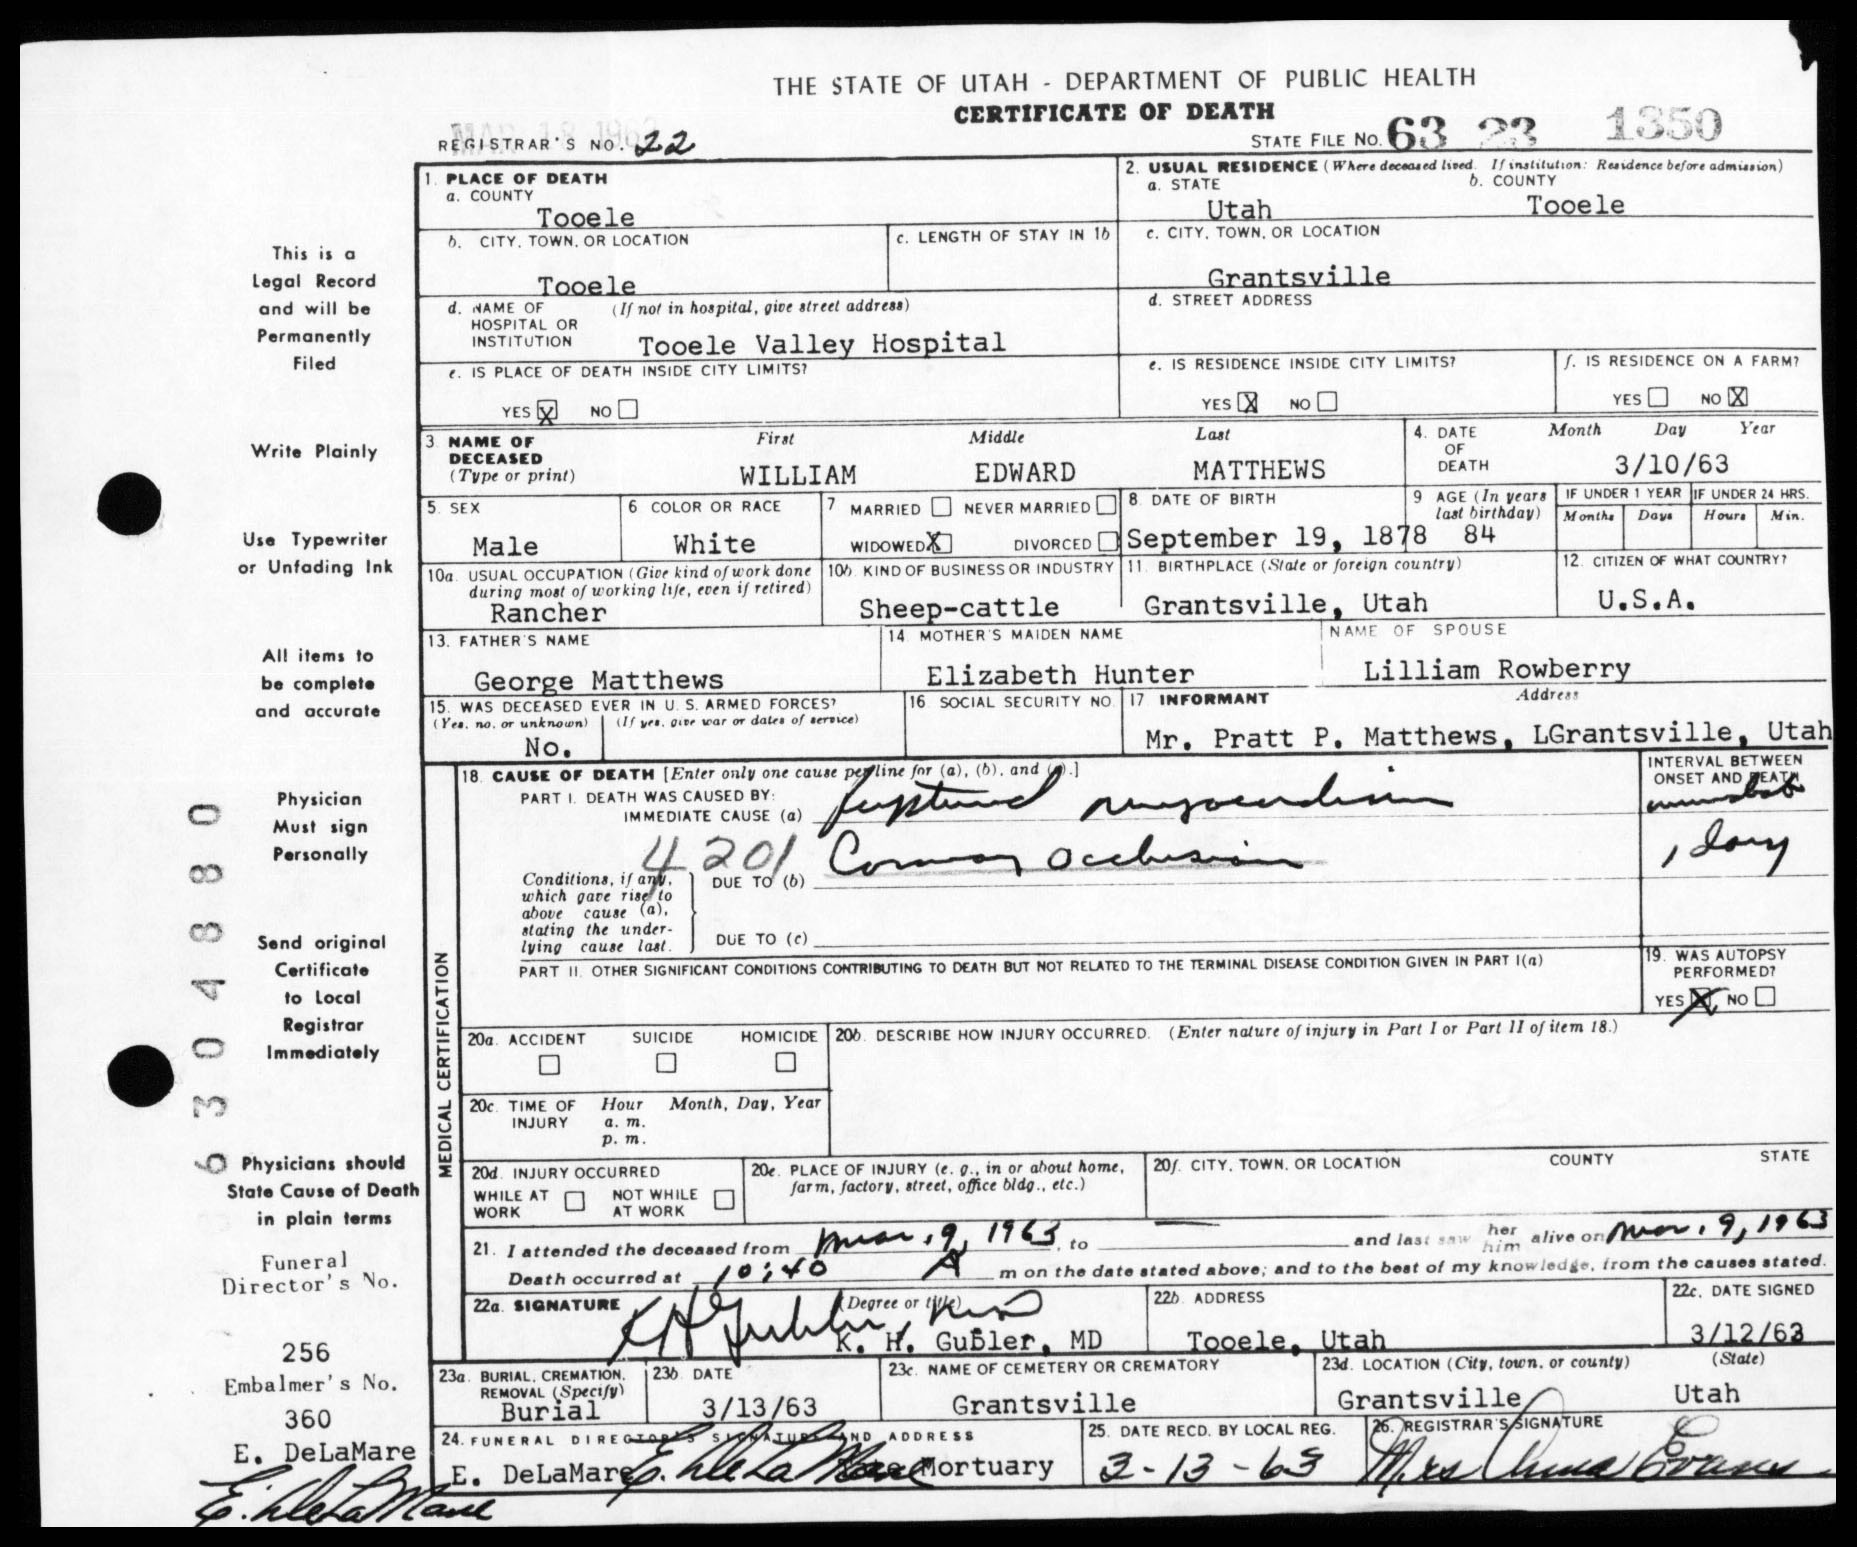 THE STATE OF UTAH - DEPARTMENT OF PUBLIC HEALTH
CERTIFICATE OF DEATH
MAR 18 1963
REGISTRAR'S NO. 22
STATE FILE NO. 63 23 1350
1. PLACE OF DEATH
a. COUNTY
Tooele
2. USUAL RESIDENCE (Where deceased lived. If institution: Residence before admission)
a. STATE
Utah
b. COUNTY
Tooele
b. CITY, TOWN, OR LOCATION
Tooele
c. LENGTH OF STAY IN 1b
c. CITY, TOWN, OR LOCATION
Grantsville
d. NAME OF HOSPITAL OR INSTITUTION (If not in hospital, give street address)
Tooele Valley Hospital
d. STREET ADDRESS
e. IS PLACE OF DEATH INSIDE CITY LIMITS?
YES X NO
e. IS RESIDENCE INSIDE CITY LIMITS?
YES X NO
f. IS RESIDENCE ON A FARM?
YES NO X
3. NAME OF DECEASED (Type or print)
First Middle Last
WILLIAM EDWARD MATTHEWS
4. DATE OF DEATH
Month Day Year
3/10/63
5. SEX
Male
6 COLOR OR RACE
White
7 MARRIED NEVER MARRIED
WIDOWED X DIVORCED
8. DATE OF BIRTH
September 19, 1878
9 AGE (In years last birthday)
84
IF UNDER 1 YEAR
Months Days
IF UNDER 24 HRS.
Hours Min.
10a. USUAL OCCUPATION (Give kind of work done during most of working life, even if retired)
Rancher
10b. KIND OF BUSINESS OR INDUSTRY
Sheep-cattle
11. BIRTHPLACE (State or foreign country)
Grantsville, Utah
12. CITIZEN OF WHAT COUNTRY?
U.S.A.
13. FATHER'S NAME
George Matthews
14 MOTHER'S MAIDEN NAME
Elizabeth Hunter
NAME OF SPOUSE
Lilliam Rowberry
15. WAS DECEASED EVER IN U. S. ARMED FORCES?
(Yes, no, or unknown) (If yes, give war or dates of service)
No.
16 SOCIAL SECURITY NO.
17 INFORMANT Address
Mr. Pratt P. Matthews, LGrantsville, Utah
MEDICAL CERTIFICATION
18. CAUSE OF DEATH [Enter only one cause per line for (a), (b), and (c).]
INTERVAL BETWEEN ONSET AND DEATH
PART I. DEATH WAS CAUSED BY:
IMMEDIATE CAUSE (a) Ruptured myocardium
4201
Conditions, if any, which gave rise to above cause (a), stating the underlying cause last.
DUE TO (b) Coronary Occlusion 1 day
DUE TO (c)
PART II. OTHER SIGNIFICANT CONDITIONS CONTRIBUTING TO DEATH BUT NOT RELATED TO THE TERMINAL DISEASE CONDITION GIVEN IN PART I(a)
19. WAS AUTOPSY PERFORMED?
YES X NO
20a. ACCIDENT SUICIDE HOMICIDE
20b. DESCRIBE HOW INJURY OCCURRED. (Enter nature of injury in Part I or Part II of item 18.)
20c. TIME OF INJURY Hour Month, Day, Year
a. m.
p. m.
20d. INJURY OCCURRED
WHILE AT WORK NOT WHILE AT WORK
20e. PLACE OF INJURY (e. g., in or about home, farm, factory, street, office bldg., etc.)
20f. CITY, TOWN, OR LOCATION COUNTY STATE
21. I attended the deceased from Mar. 9, 1963, to and last saw her him alive on Mar. 9, 1963
Death occurred at 10:40 A m on the date stated above; and to the best of my knowledge, from the causes stated.
22a. SIGNATURE (Degree or title)
K H Gubler, MD
K. H. Gubler, MD
22b. ADDRESS
Tooele, Utah
22c. DATE SIGNED
3/12/63
23a. BURIAL, CREMATION, REMOVAL (Specify)
Burial
23b. DATE
3/13/63
23c. NAME OF CEMETERY OR CREMATORY
Grantsville
23d. LOCATION (City, town, or county) (State)
Grantsville Utah
24. FUNERAL DIRECTOR'S SIGNATURE AND ADDRESS
E. DeLaMare E. DeLaMare Mortuary
25. DATE RECD. BY LOCAL REG.
3-13-63
26. REGISTRAR'S SIGNATURE
Mrs Anna Evans
This is a
Legal Record
and will be
Permanently
Filed
Write Plainly
Use Typewriter
or Unfading Ink
All items to
be complete
and accurate
Physician
Must sign
Personally
Send original
Certificate
to Local
Registrar
Immediately
Physicians should
State Cause of Death
in plain terms
6304880
Funeral
Director's No.
256
Embalmer's No.
360
E. DeLaMare
E. DeLaMare